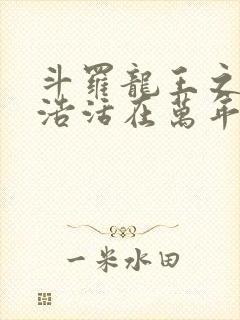 斗羅龍王之
浩活在萬年
一米水田